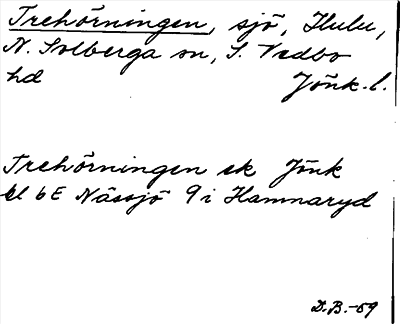 Trehörningen, sjö, Hulu,
N. Solberga sn, S. Vedbo
hd Jönk. l.
Trehörningen ek Jönk
bl 6E Nässjö 9 i Hamnaryd
D.B.-59